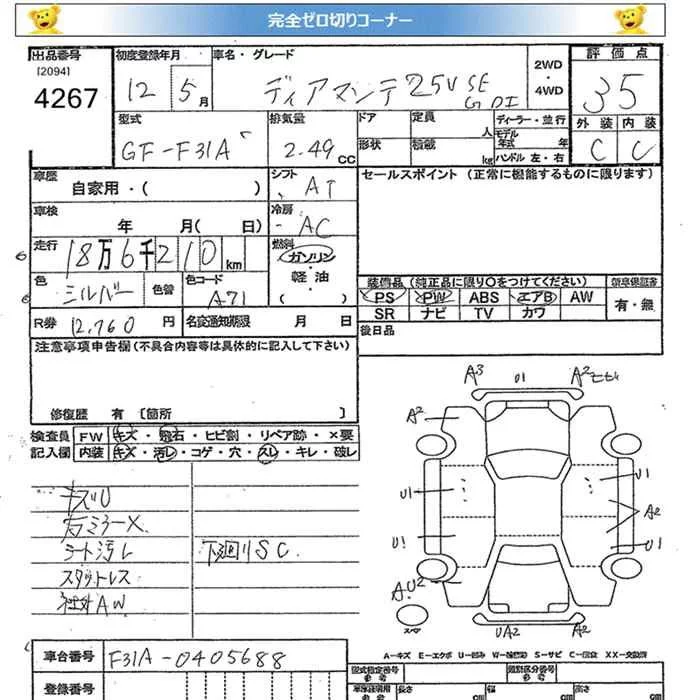 完全ゼロ切りコーナー
出品番号 [2094] 4267
初度登録年月 12 5月
車名・グレード ディアマンテ 25V SE GDI
2WD・4WD
評価点 35
外装 C 内装 C
型式 GF-F31A
排気量 2.49 CC
ドア 形状
定員 人
積載 kg
ディーラー・並行
モデル年式 年
ハンドル 左・右
車歴 自家用・( )
シフト AT
セールスポイント (正常に機能するものに限ります)
車検 年 月( 日)
冷房 AC
走行 18万6千210km
燃料 ガソリン・軽油・( )
色 シルバー 色替 色コード A71
装備品(純正品に限り○をつけてください)
新車保証書 有・無
PS PW ABS エアB AW
SR ナビ TV カワ
R券 12,760 円
名変通知期限 月 日
後日品
注意事項申告欄(不具合内容等は具体的に記入して下さい)
修復歴 有 [箇所 ]
検査員記入欄
FW キズ・飛石・ヒビ割・リペア跡・×要
内装 キズ・汚レ・コゲ・穴・スレ・キレ・破レ
キズU
右ミラーX
シート汚レ
下廻りSC
スタットレス
社外AW
A3 U1 A2
A2
U1 U1
A2
U1 U1
AU2
スペア
UA2 A2
A-キズ E-エクボ U-凹み W-補修跡 S-サビ C-腐食 XX-交換済
車台番号 F31A-0405688
登録番号
型式指定番号 類別区分番号
長さ cm 幅 cm 高さ cm